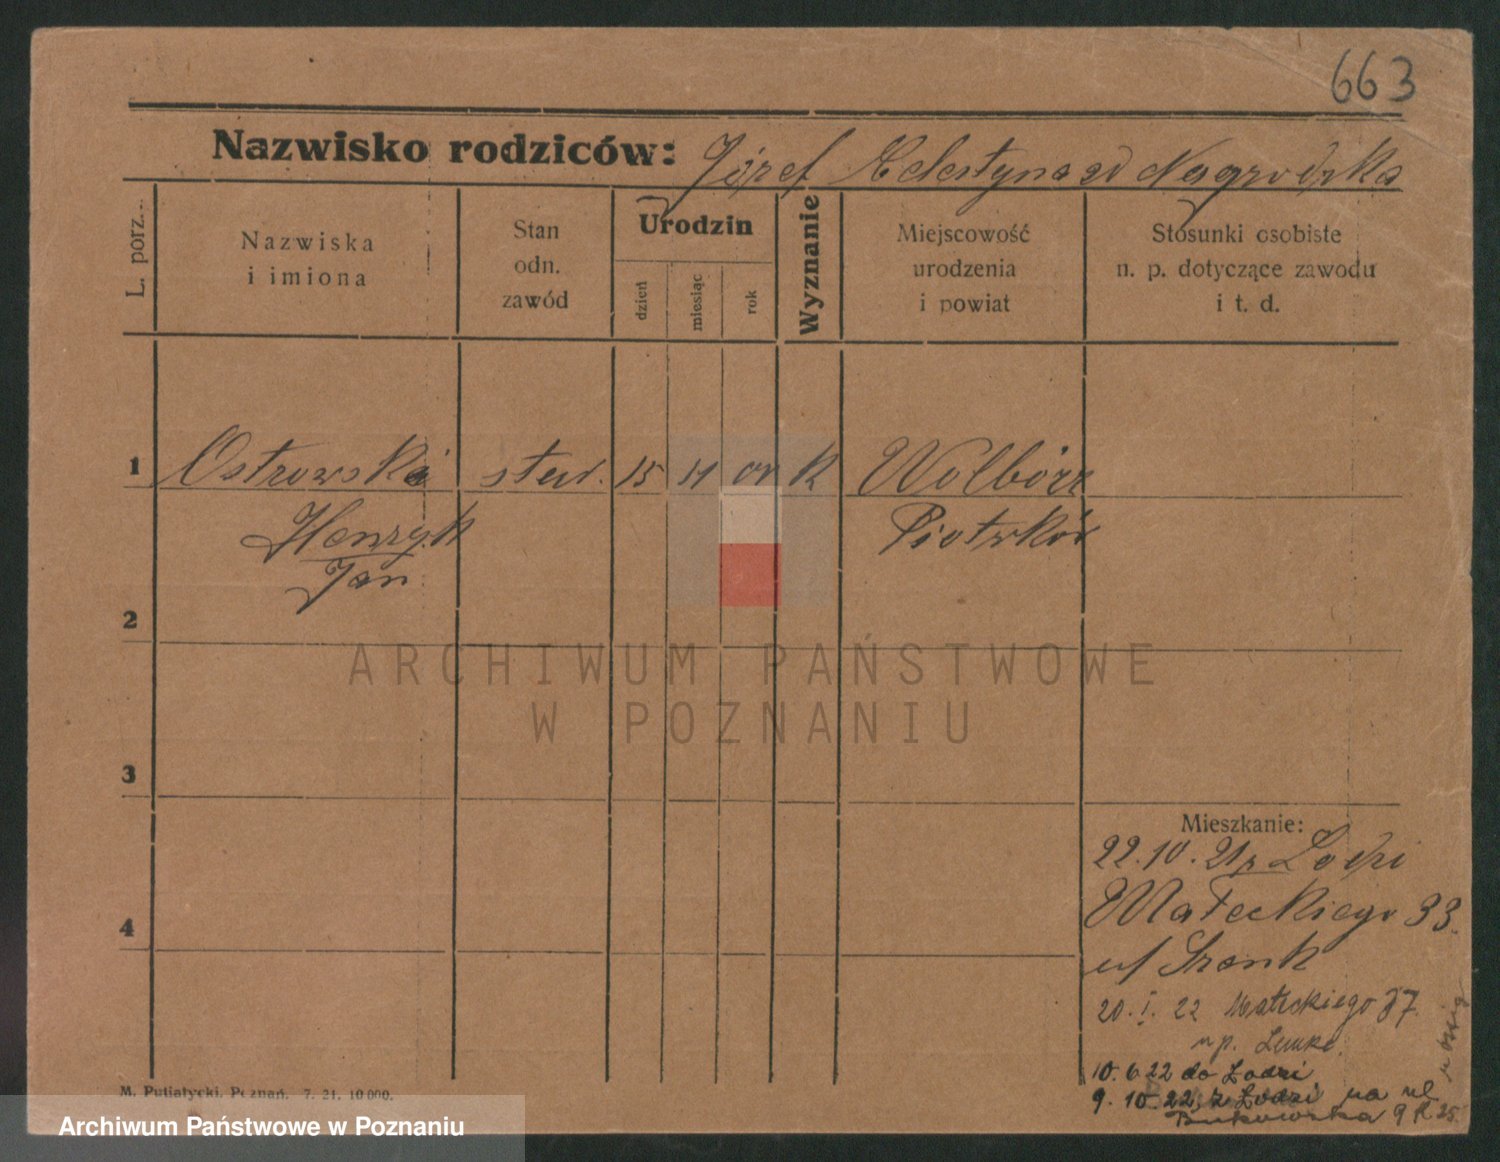 663
Nazwisko rodziców: Józef Celestyna zd Nagrodzka
L. porz.
Nazwiska
i imiona
Stan
odn.
zawód
Urodzin
dzień
miesiąc
rok
Wyznanie
Miejscowość
urodzenia
i powiat
Stosunki osobiste
n. p. dotyczące zawodu
i t. d.
1 Ostrowski stud. 15 K Wolbórz
Henryk Piotrków
Jan
2
ARCHIWUM PAŃSTWOWE
W POZNANIU
3
Mieszkanie:
22.10.21 z Łodzi
4 Małeckiego 33.
u/ Frank
20.I.22 Małeckiego 37
u p. Lemke
10.6.22 do Łodzi
9.10.22, z Łodzi na ul
Bukowska 9
M. Putiatycki, Poznań. 7. 21. 10 000.
Archiwum Państwowe w Poznaniu